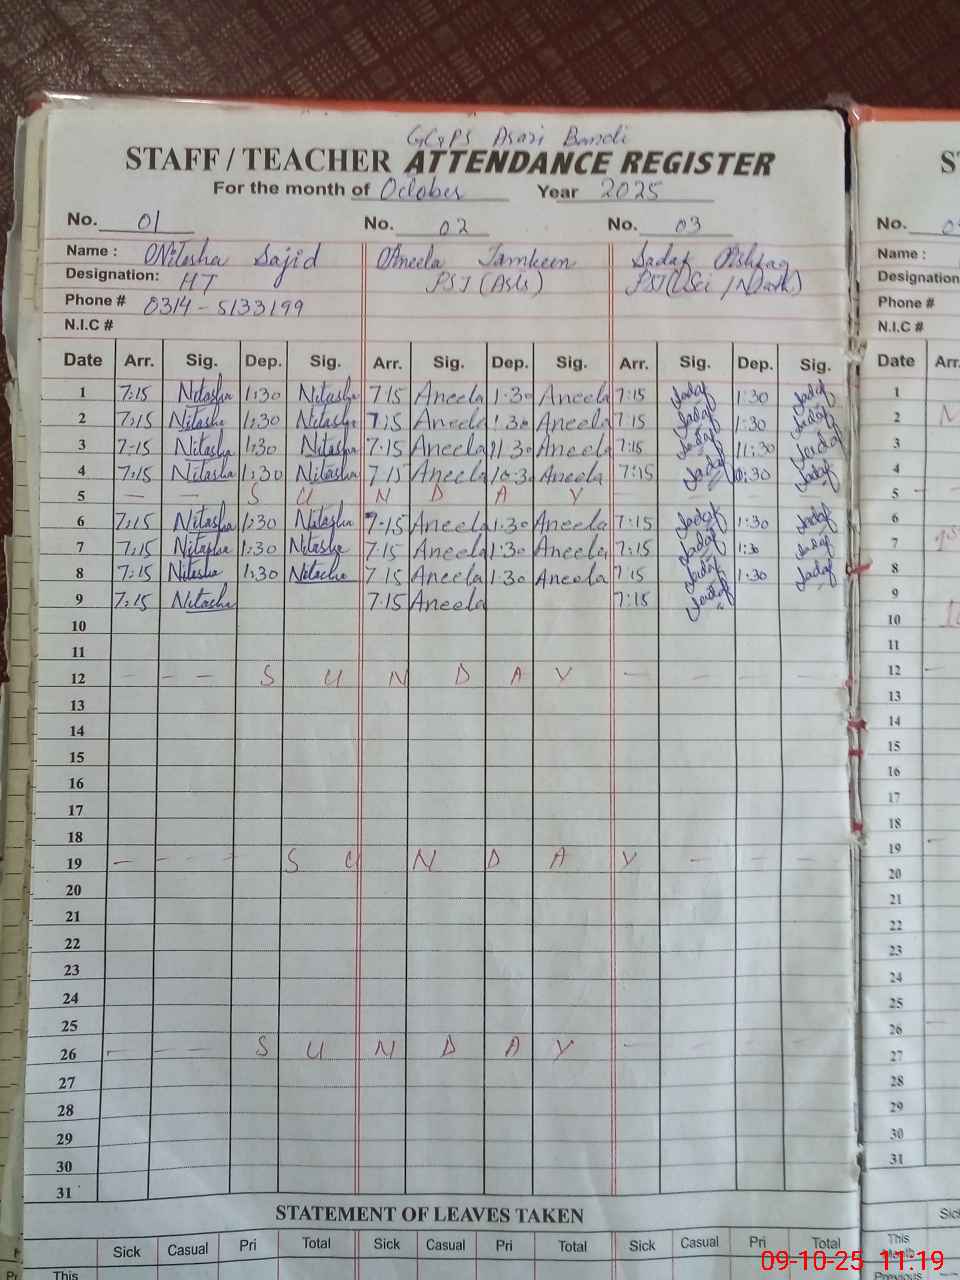 GGPS Asari Bandi
STAFF / TEACHER ATTENDANCE REGISTER
For the month of October Year 2025
No. 01 No. 02 No. 03
Name : Nitasha Sajid Aneela Tamkeen Sadaf
Designation: HT PST (Arts) PST (Sci
Phone # 0314-5133199
N.I.C #
Date Arr. Sig. Dep. Sig. Arr. Sig. Dep. Sig. Arr. Sig. Dep. Sig.
1 7:15 Nitasha 1:30 Nitasha 7:15 Aneela 1:30 Aneela 7:15 Sadaf 1:30 Sadaf
2 7:15 Nitasha 1:30 Nitasha 7:15 Aneela 1:30 Aneela 7:15 Sadaf 1:30 Sadaf
3 7:15 Nitasha 1:30 Nitasha 7:15 Aneela 11:30 Aneela 7:15 Sadaf 11:30 Sadaf
4 7:15 Nitasha 1:30 Nitasha 7:15 Aneela Aneela 7:15 Sadaf Sadaf
5 - - S U N D A Y
6 7:15 Nitasha 1:30 Nitasha 7:15 Aneela 1:30 Aneela 7:15 Sadaf 1:30 Sadaf
7 7:15 Nitasha 1:30 Nitasha 7:15 Aneela 1:30 Aneela 7:15 Sadaf 1:30 Sadaf
8 7:15 Nitasha 1:30 Nitasha 7:15 Aneela 1:30 Aneela 7:15 Sadaf 1:30 Sadaf
9 7:15 Nitasha 7:15 Aneela 7:15 Sadaf
10
11
12 - - - S U N D A Y - - - -
13
14
15
16
17
18
19 - - - S U N D A Y - - -
20
21
22
23
24
25
26 - - - S U N D A Y - - - -
27
28
29
30
31
STATEMENT OF LEAVES TAKEN
Sick Casual Pri Total Sick Casual Pri Total Sick Casual Pri Total
This
No.
Name :
Designation
Phone #
N.I.C #
Date Arr.
1
2
3
4
5
6
7
8
9
10
11
12
13
14
15
16
17
18
19
20
21
22
23
24
25
26
27
28
29
30
31
This
Month
Previous
09-10-25 11:19